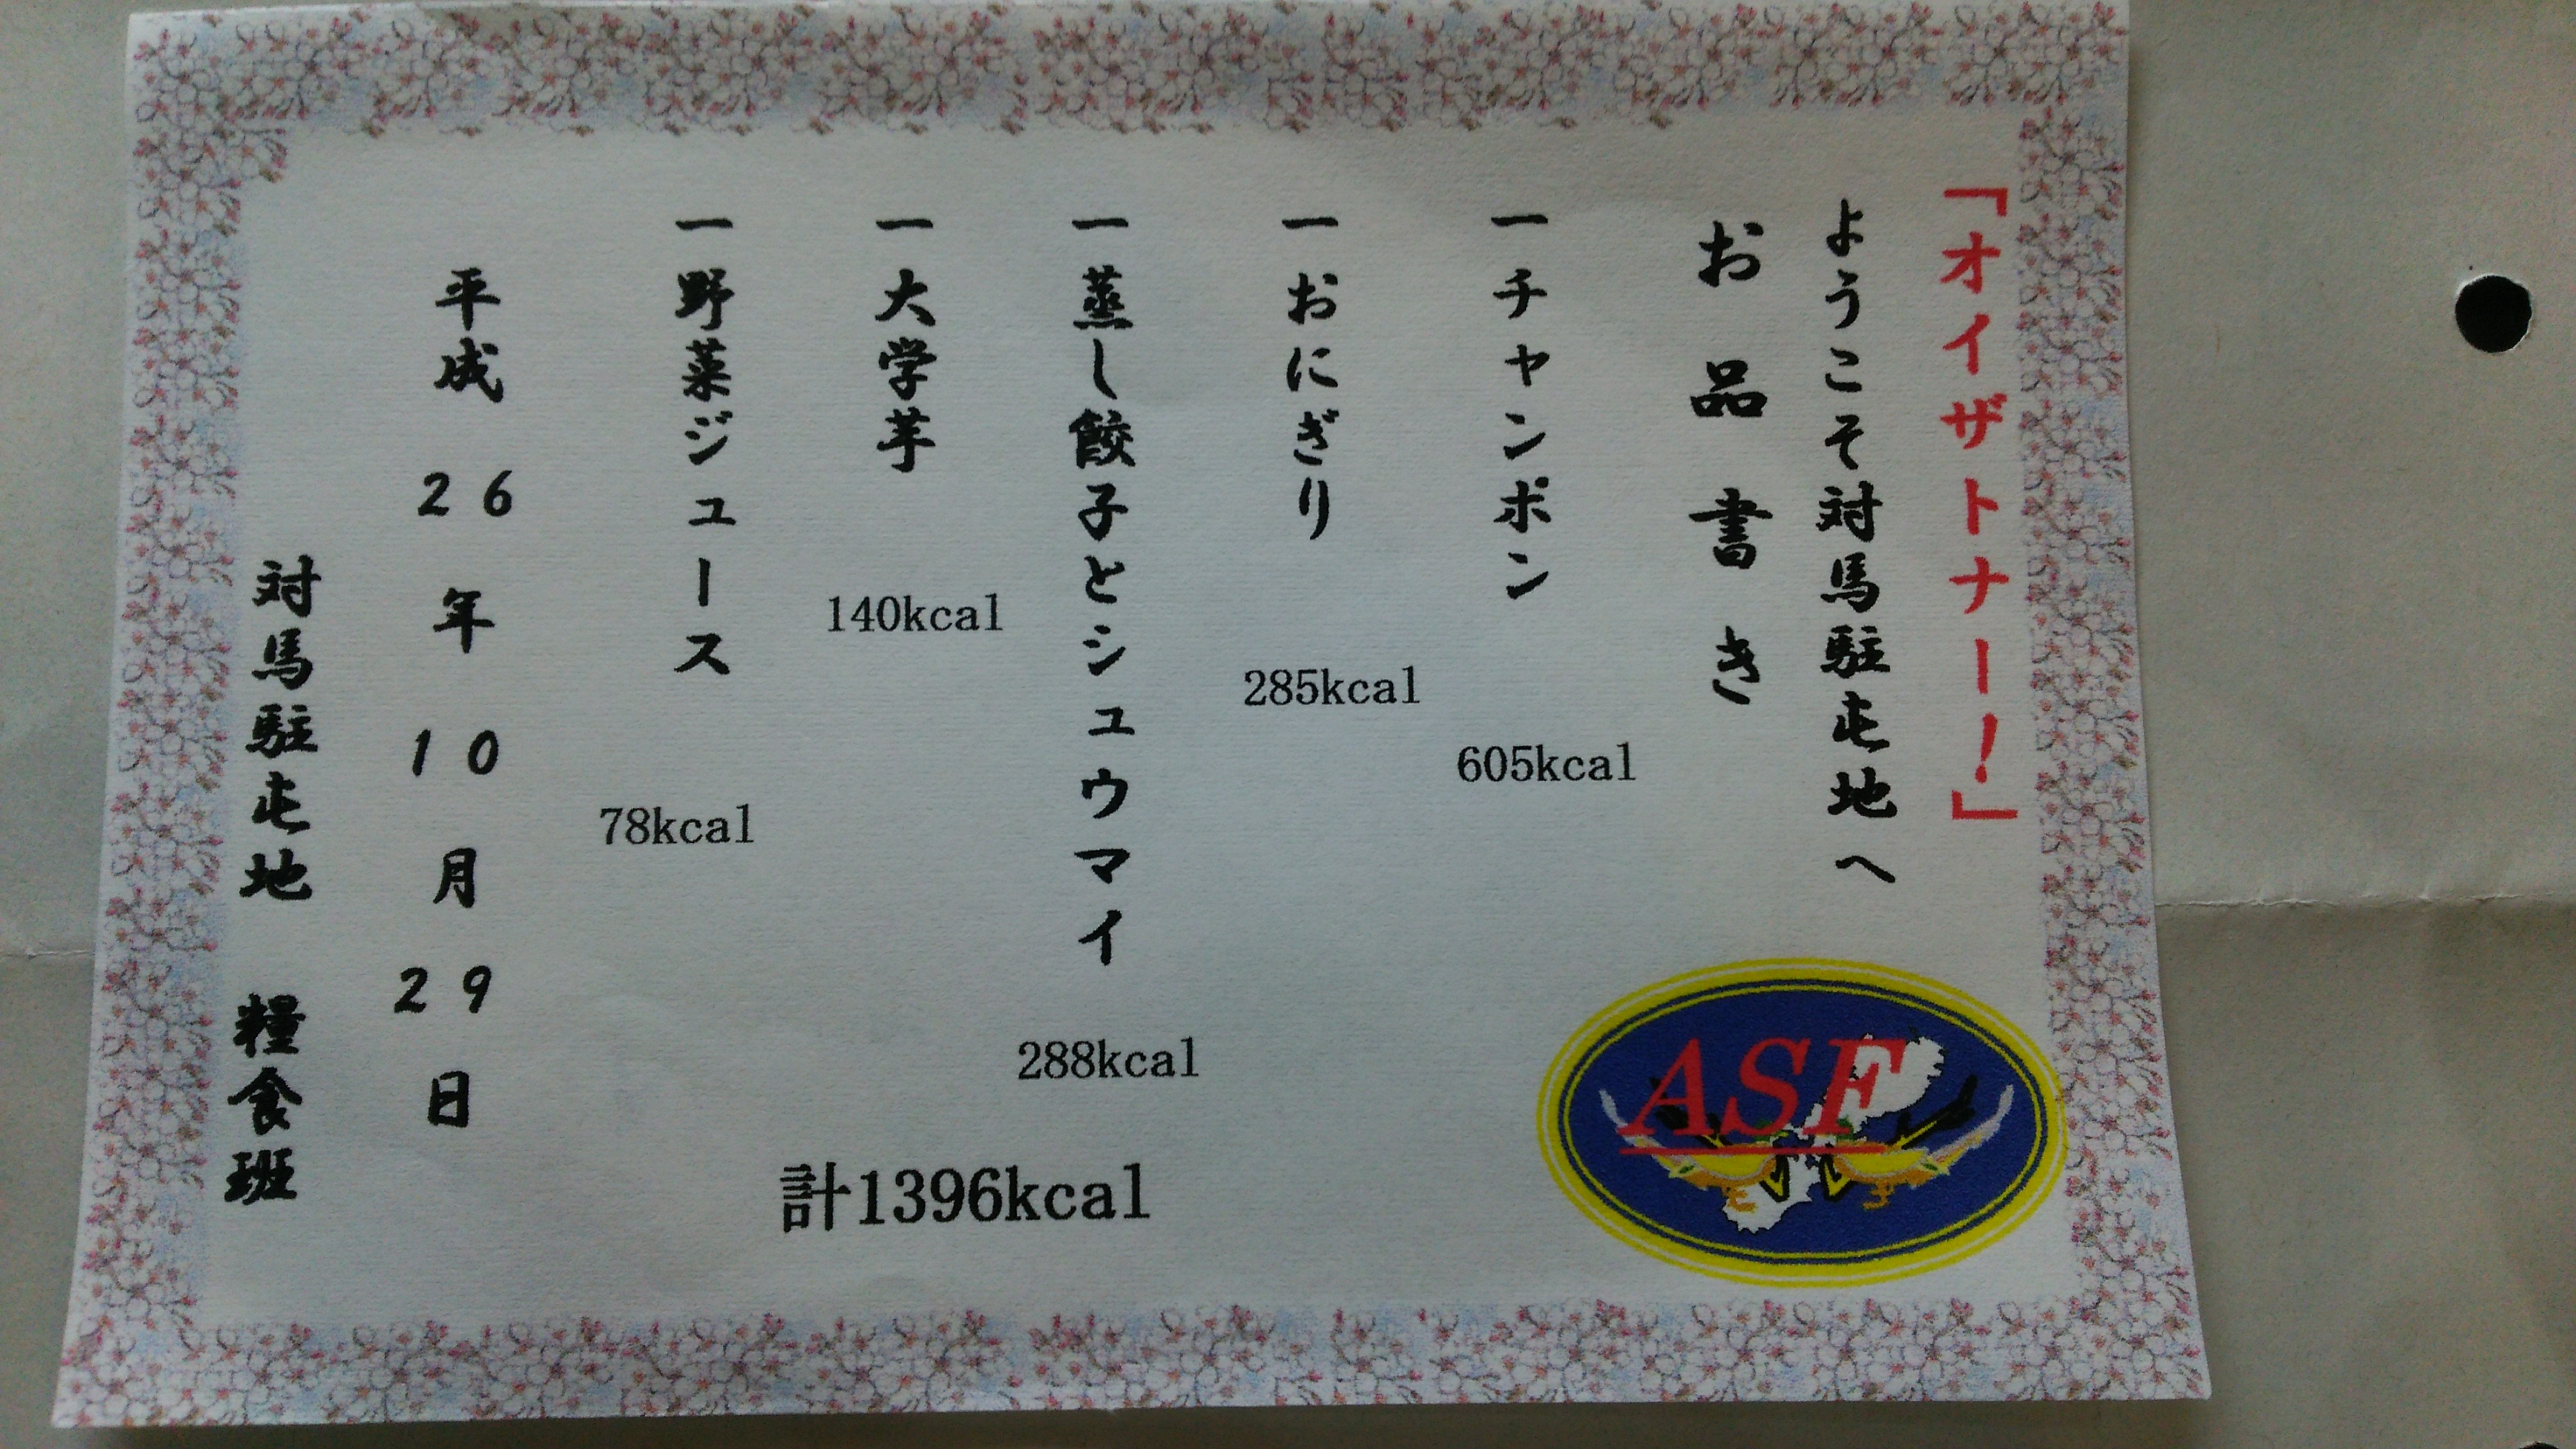 「オイザトナー！」
ようこそ対馬駐屯地へ
お品書き
一チャンポン
605kcal
一おにぎり
285kcal
一蒸し餃子とシュウマイ
288kcal
一大学芋
140kcal
一野菜ジュース
78kcal
計1396kcal
平成 26 年 10 月 29 日
対馬駐屯地 糧食班
ASF